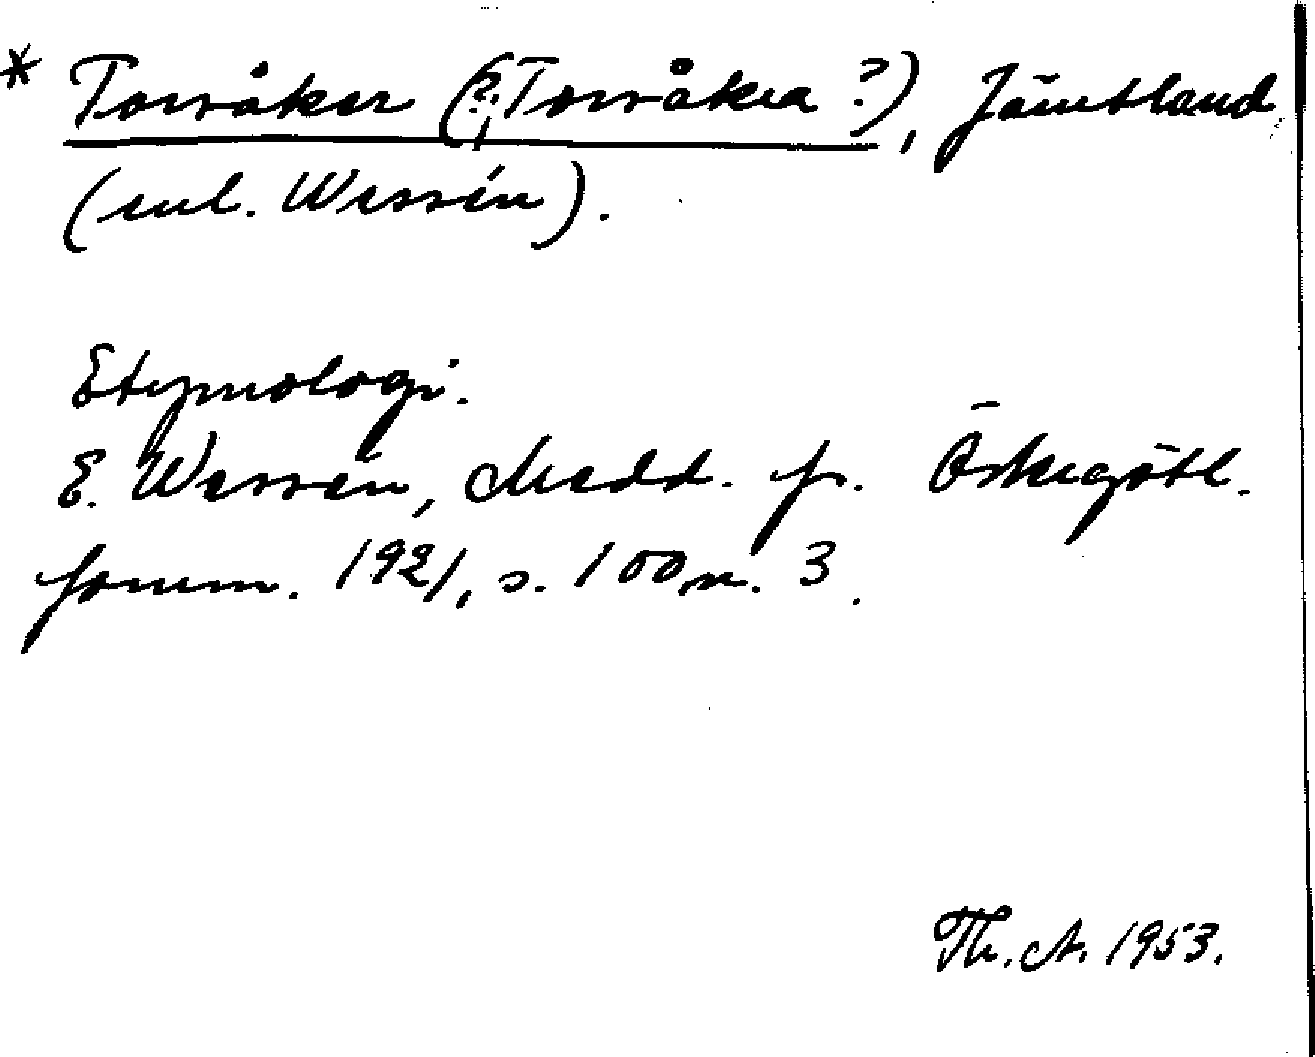 * Torsåker (?; Torsåkra ?), Jämtland
(enl. Wessén).
Etymologi.
E. Wessén, Medd. fr. Östergötl.
fornm. 1921, s. 100, n. 3.
Th. A. 1953.